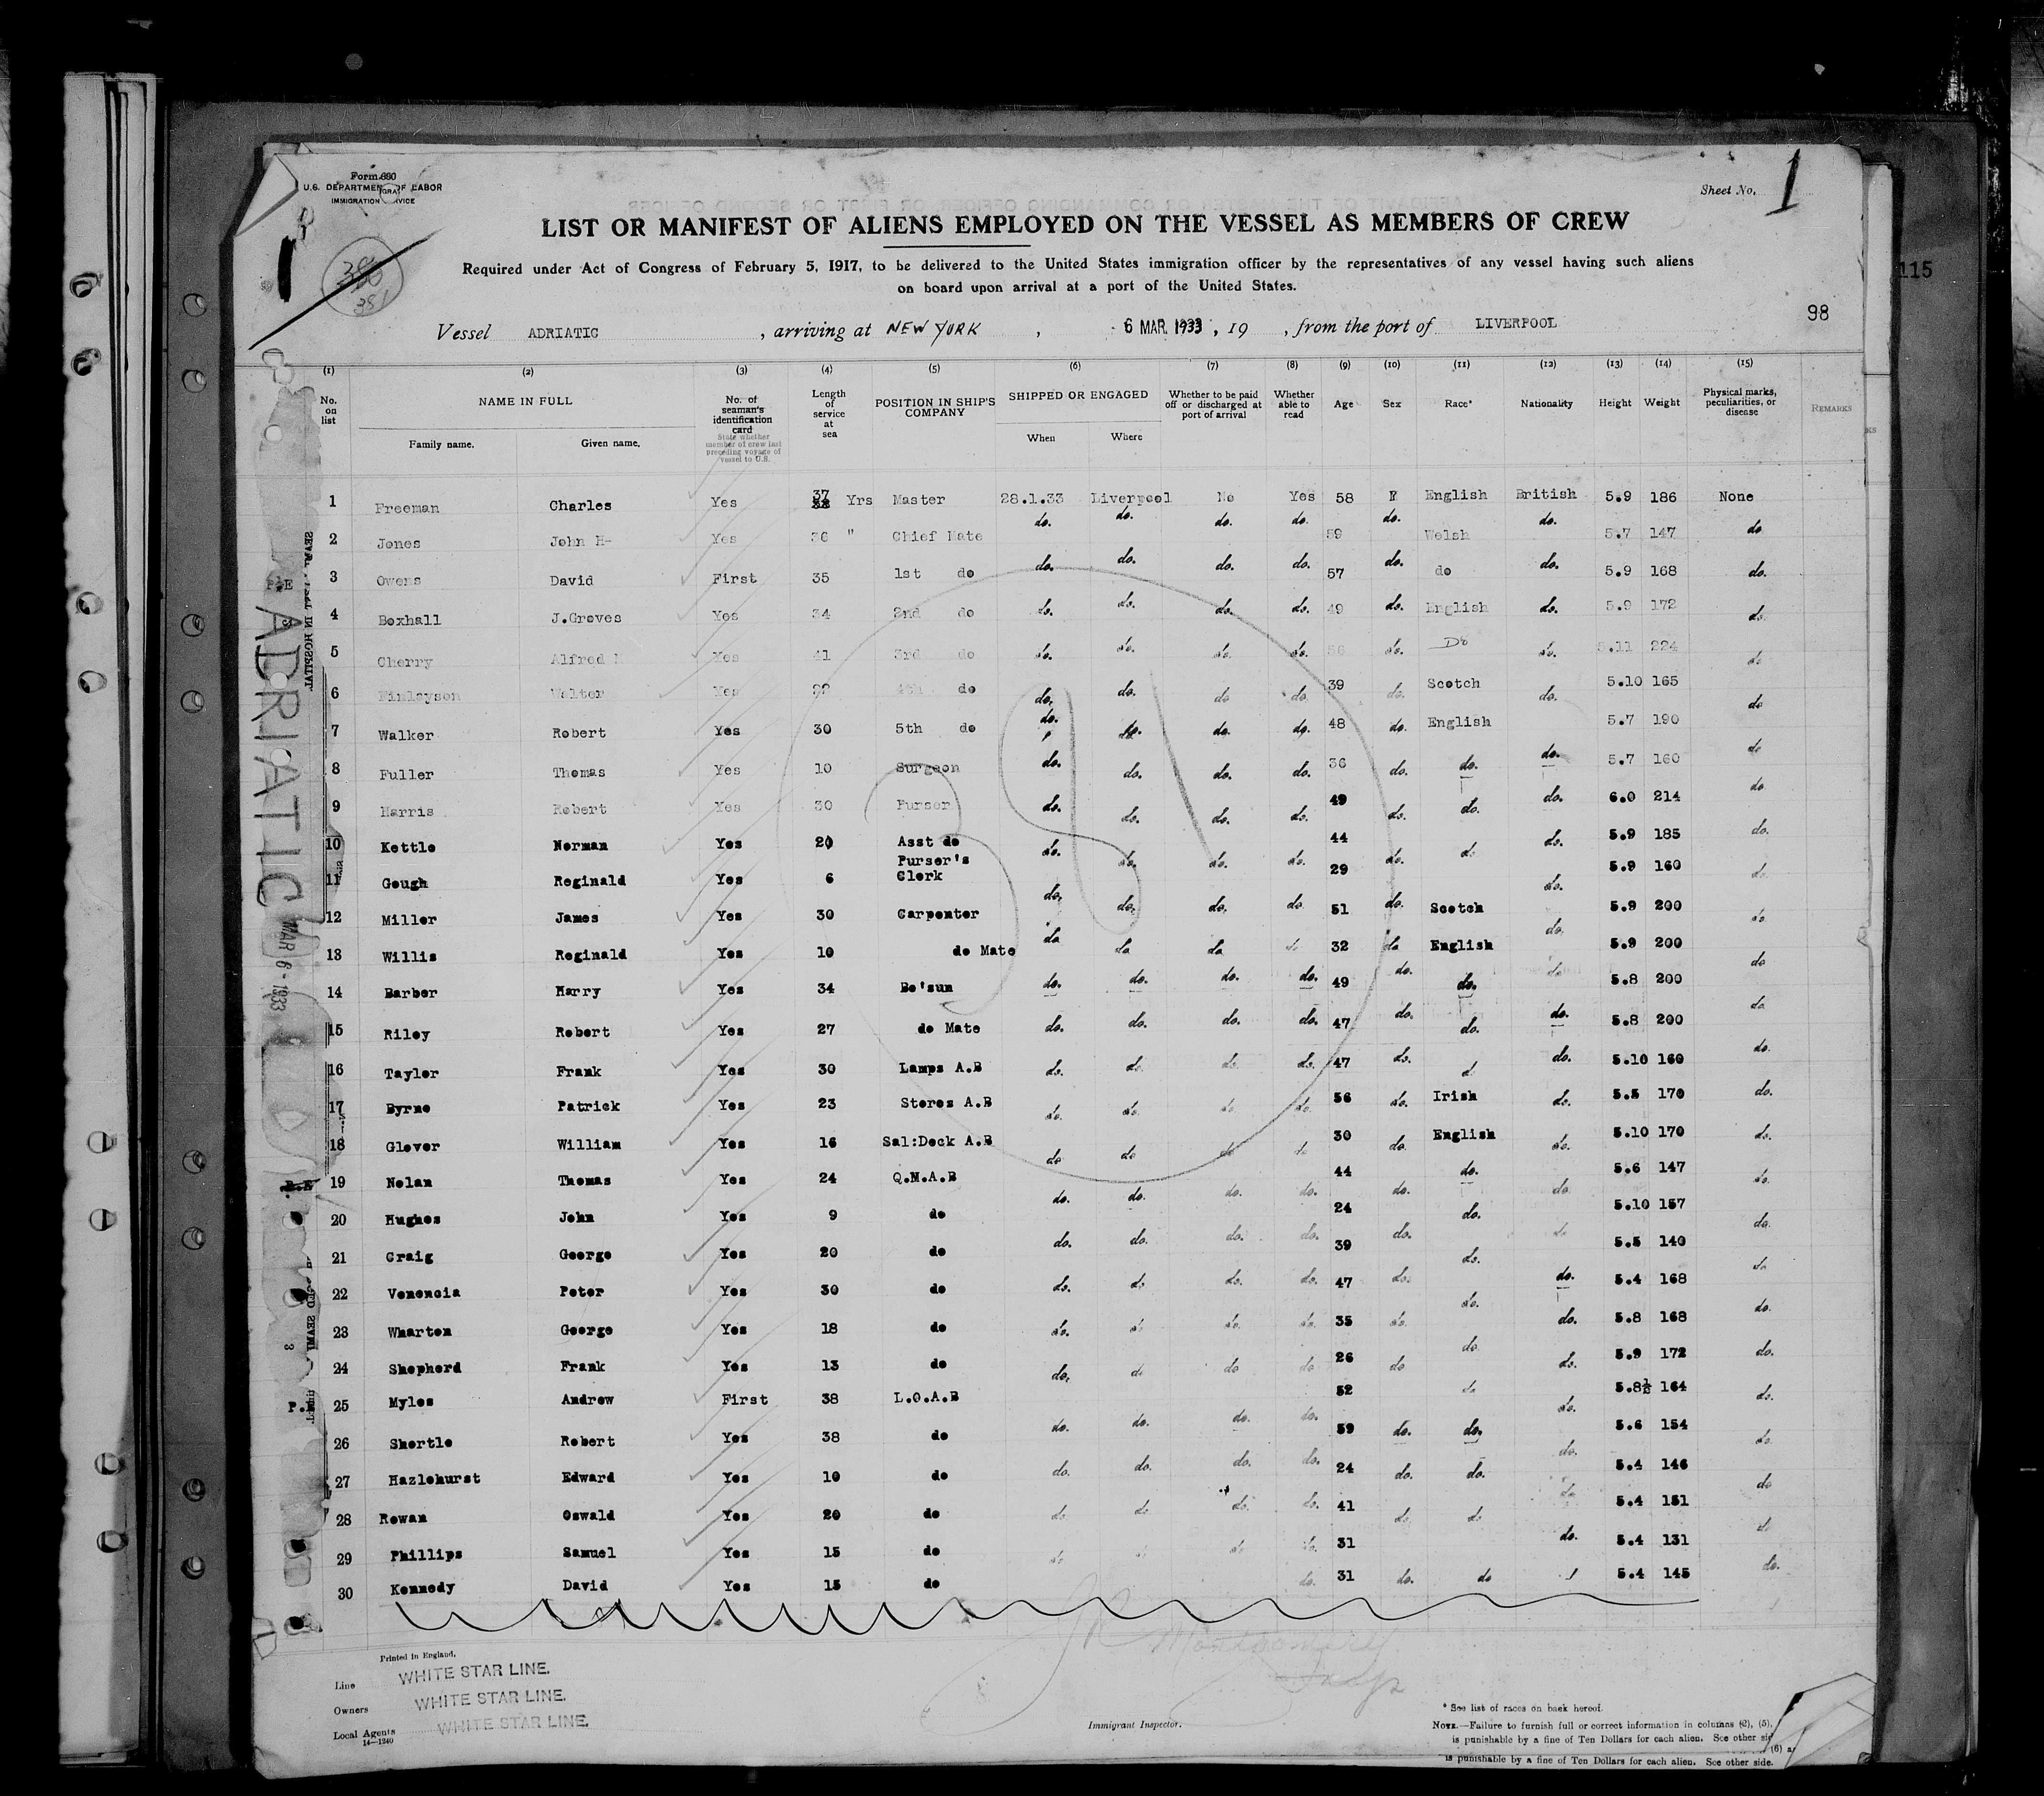 Form 680
U.S. DEPARTMENT OF LABOR
IMMIGRATION SERVICE
Sheet No. 1
LIST OR MANIFEST OF ALIENS EMPLOYED ON THE VESSEL AS MEMBERS OF CREW
Required under Act of Congress of February 5, 1917, to be delivered to the United States immigration officer by the representatives of any vessel having such aliens
on board upon arrival at a port of the United States.
115
98
Vessel ADRIATIC, arriving at NEW YORK, 6 MAR. 1933, 19 , from the port of LIVERPOOL
(1) (2) (3) (4) (5) (6) (7) (8) (9) (10) (11) (12) (13) (14) (15)
No. on list NAME IN FULL Family name. Given name. No. of seaman's identification card State whether member of crew last preceding voyage of vessel to U.S. Length of service at sea POSITION IN SHIP'S COMPANY SHIPPED OR ENGAGED When Where Whether to be paid off or discharged at port of arrival Whether able to read Age Sex Race* Nationality Height Weight Physical marks, peculiarities, or disease REMARKS
1 Freeman Charles Yes 37 Yrs Master 28.1.33 Liverpool No Yes 58 English British 5.9 186 None
2 Jones John H- Yes 36 " Chief Mate do. do. do. do. 59 do. Welsh do. 5.7 147 do
3 Owens David First 35 1st do do. do. do. do. 57 do. do do. 5.9 168 do.
4 Boxhall J.Groves Yes 34 2nd do do. do. do. do. 49 do. English do. 5.9 172 do.
5 Cherry Alfred M Yes 41 3rd do do. do. do. do. 56 do. Do do. 5.11 224 do
6 Finlayson Walter Yes 22 4th do do. do. do do. 39 do. Scotch do. 5.10 165 do
7 Walker Robert Yes 30 5th do do. do. do. do. 48 do. English 5.7 190
8 Fuller Thomas Yes 10 Surgeon do. do. do. do. 36 do. do. do. 5.7 160 do
9 Harris Robert Yes 30 Purser do. do. do. do. 49 do. do. do. 6.0 214 do
10 Kettle Norman Yes 20 Asst do do. do. do. do. 44 do. do do. 5.9 185 do.
11 Gough Reginald Yes 6 Purser's Clerk 29 do. 5.9 160 do.
12 Miller James Yes 30 Carpenter do. do. do. do 51 do. Scotch 5.9 200 do
13 Willis Reginald Yes 10 do Mate do do do do 32 do English do. 5.9 200
14 Barber Harry Yes 34 Bo'sun do. do. do. do. 49 do. do. do 5.8 200 do
15 Riley Robert Yes 27 do Mate do. do. do. do. 47 do. do. do. 5.8 200 do
16 Tayler Frank Yes 30 Lamps A.B do. do. do. do. 47 do. d do. 5.10 160 do.
17 Byrne Patrick Yes 23 Stores A.B do. do. do do. 56 do. Irish do. 5.5 170 do.
18 Glover William Yes 16 Sal:Deck A.B do do do do 30 do. English do. 5.10 170 do.
19 Nolan Thomas Yes 24 Q.M.A.B do. do. do. do. 44 do. do. do 5.6 147 do.
20 Hughes John Yes 9 do 24 do. 5.10 157 do
21 Craig George Yes 20 do do. do. do. do. 39 do. do. do 5.5 140 do
22 Venencia Peter Yes 30 do do. do do. do. 47 do. do. do. 5.4 168
23 Wharton George Yes 18 do do. do do. do. 35 do. do. do. 5.8 168 do.
24 Shepherd Frank Yes 13 do do. do do do 26 do do do. 5.9 172 do.
25 Myles Andrew First 38 L.O.A.B 52 do. 5.8½ 164 do.
26 Shertle Robert Yes 38 do do. do. do. do. 59 do. do. do. 5.6 154 do.
27 Hazlehurst Edward Yes 10 do do. do. do. do. 24 do. do. do 5.4 146 do
28 Rowan Oswald Yes 20 do do do do. do. 41 do do 5.4 151 do
29 Phillips Samuel Yes 15 do do do do. 31 do. 5.4 131
30 Kennedy David Yes 15 do do. 31 do. do 5.4 145 do.
ADRIATIC
MAR 6 - 1933
Printed in England.
Line WHITE STAR LINE.
Owners WHITE STAR LINE.
Local Agents WHITE STAR LINE.
14—1240
JR Montgomery
Insp
Immigrant Inspector.
* See list of races on back hereof.
NOTE.—Failure to furnish full or correct information in columns (2), (5),
is punishable by a fine of Ten Dollars for each alien. See other
(6)
is punishable by a fine of Ten Dollars for each alien. See other side.